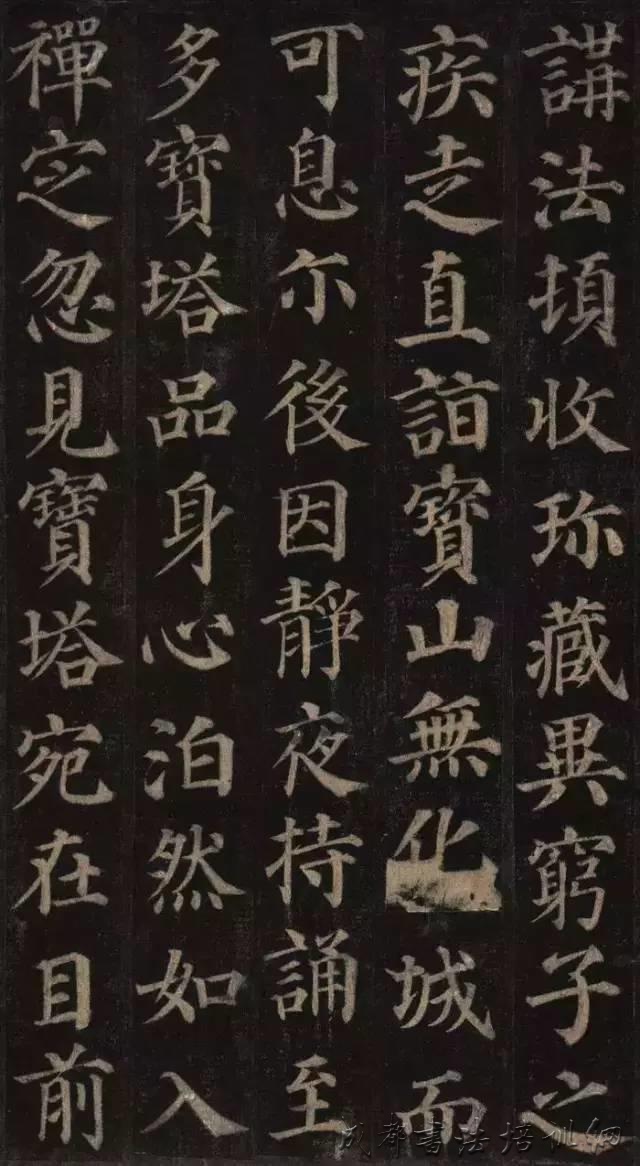 講法頓收珎藏異窮子之
疾走直詣寶山無化城而
可息尒後因靜夜持誦至
多寶塔品身心泊然如入
禪定忽見寶塔宛在目前
成都書法培训網